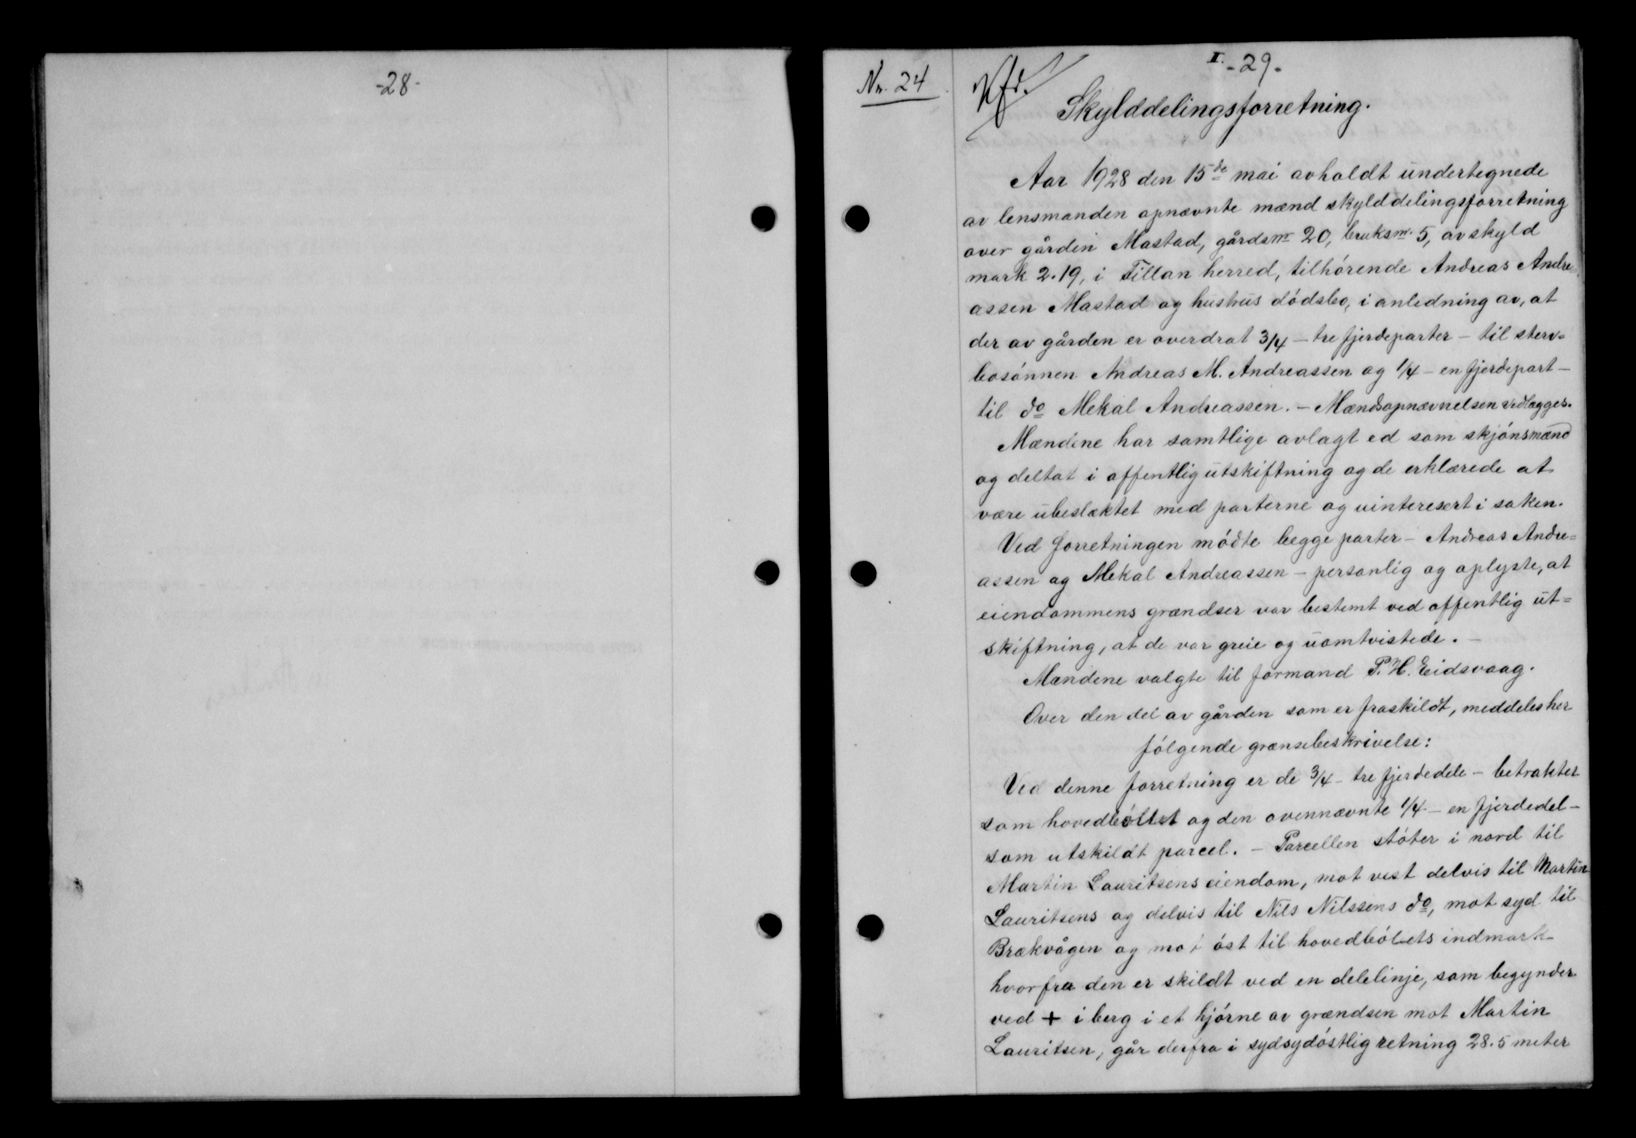 -28-
Nr. 24
I.
-29-
Skylddelingsforretning.
Aar 1928 den 15de mai avholdt undertegnede
av lensmanden opnævnte mænd skylddelingsforretning
over gården Mastad, gårdsnr 20, bruksnr. 5, av skyld
mark 2.19, i Fillan herred, tilhørende Andreas Andre-
assen Mastad og hustrus dødsbo, i anledning av, at
der av gården er overdrat 3/4 - tre fjerdeparter - til sterv=
bosønnen Andreas M. Andreassen og 1/4 - en fjerdepart -
til do Mekal Andreassen. - Mændsopnævnelsen vedlægges.
Mændene har samtlige avlagt ed som skjønsmænd
og deltat i offentlig utskiftning og de erklærede at
være ubeslæktet med parterne og uinteresert i saken.
Ved forretningen mødte begge parter - Andreas Andre=
assen og Mekal Andreassen - personlig og oplyste, at
eiendommens grændser var bestemt ved offentlig ut=
skiftning, at de var greie og uomtvistede. -
Mændene valgte til formand P. H. Eidsvaag.
Over den del av gården som er fraskildt, meddeles her
følgende grænsebeskrivelse:
Ved denne forretning er de 3/4 - tre fjerdedele - betraktet
som hovedbøllet og den ovennævnte 1/4 - en fjerdedel -
som utskildt parcel. - Parcellen støter i nord til
Martin Lauritsens eiendom, mot vest delvis til Martin
Lauritsens og delvis til Nils Nilssens do, mot syd til
Brækvågen og mot øst til hovedbølets indmark
hvorfra den er skildt ved en delelinje, som begynder
ved + i berg i et hjørne av grændsen mot Martin
Lauritsen, går derfra i sydsydøstlig retning 28.5 meter